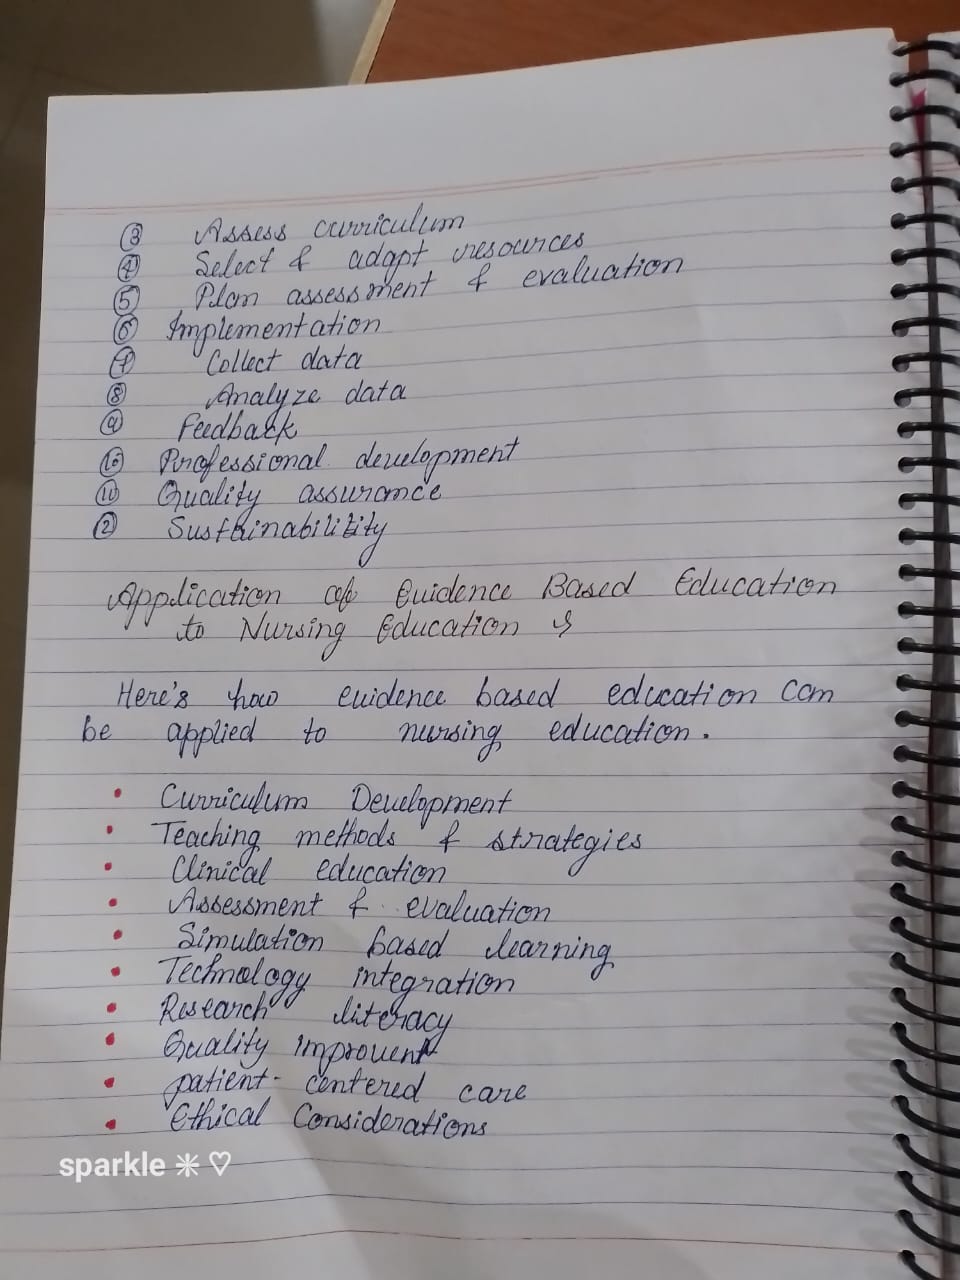 ③ Assess curriculum
④ Select & adapt resources
⑤ Plan assessment & evaluation
⑥ Implementation
⑦ Collect data
⑧ Analyze data
⑨ Feedback
⑩ Professional development
⑪ Quality assurance
② Sustainability
Application of Evidence Based Education
to Nursing Education
Here's how evidence based education can
be applied to nursing education.
• Curriculum Development
• Teaching methods & strategies
• Clinical education
• Assessment & evaluation
• Simulation based learning
• Technology integration
• Research literacy
• Quality improvent
• patient-centered care
• Ethical Considerations
sparkle ✳ ♡